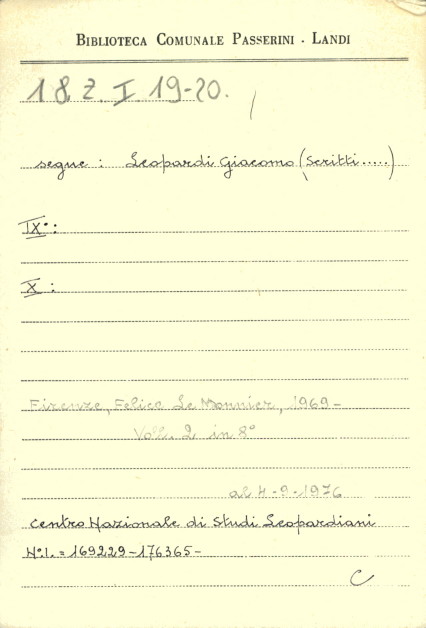 BIBLIOTECA COMUNALE PASSERINI - LANDI
18 Z. I. 19-20.
segue : Leopardi Giacomo (Scritti.....)
IX°:
X :
Firenze, Felice Le Monnier, 1969-
Voll. 2 in 8°
al 4-9-1976
Centro Nazionale di Studi Leopardiani
N°I. = 169229-176365-
C